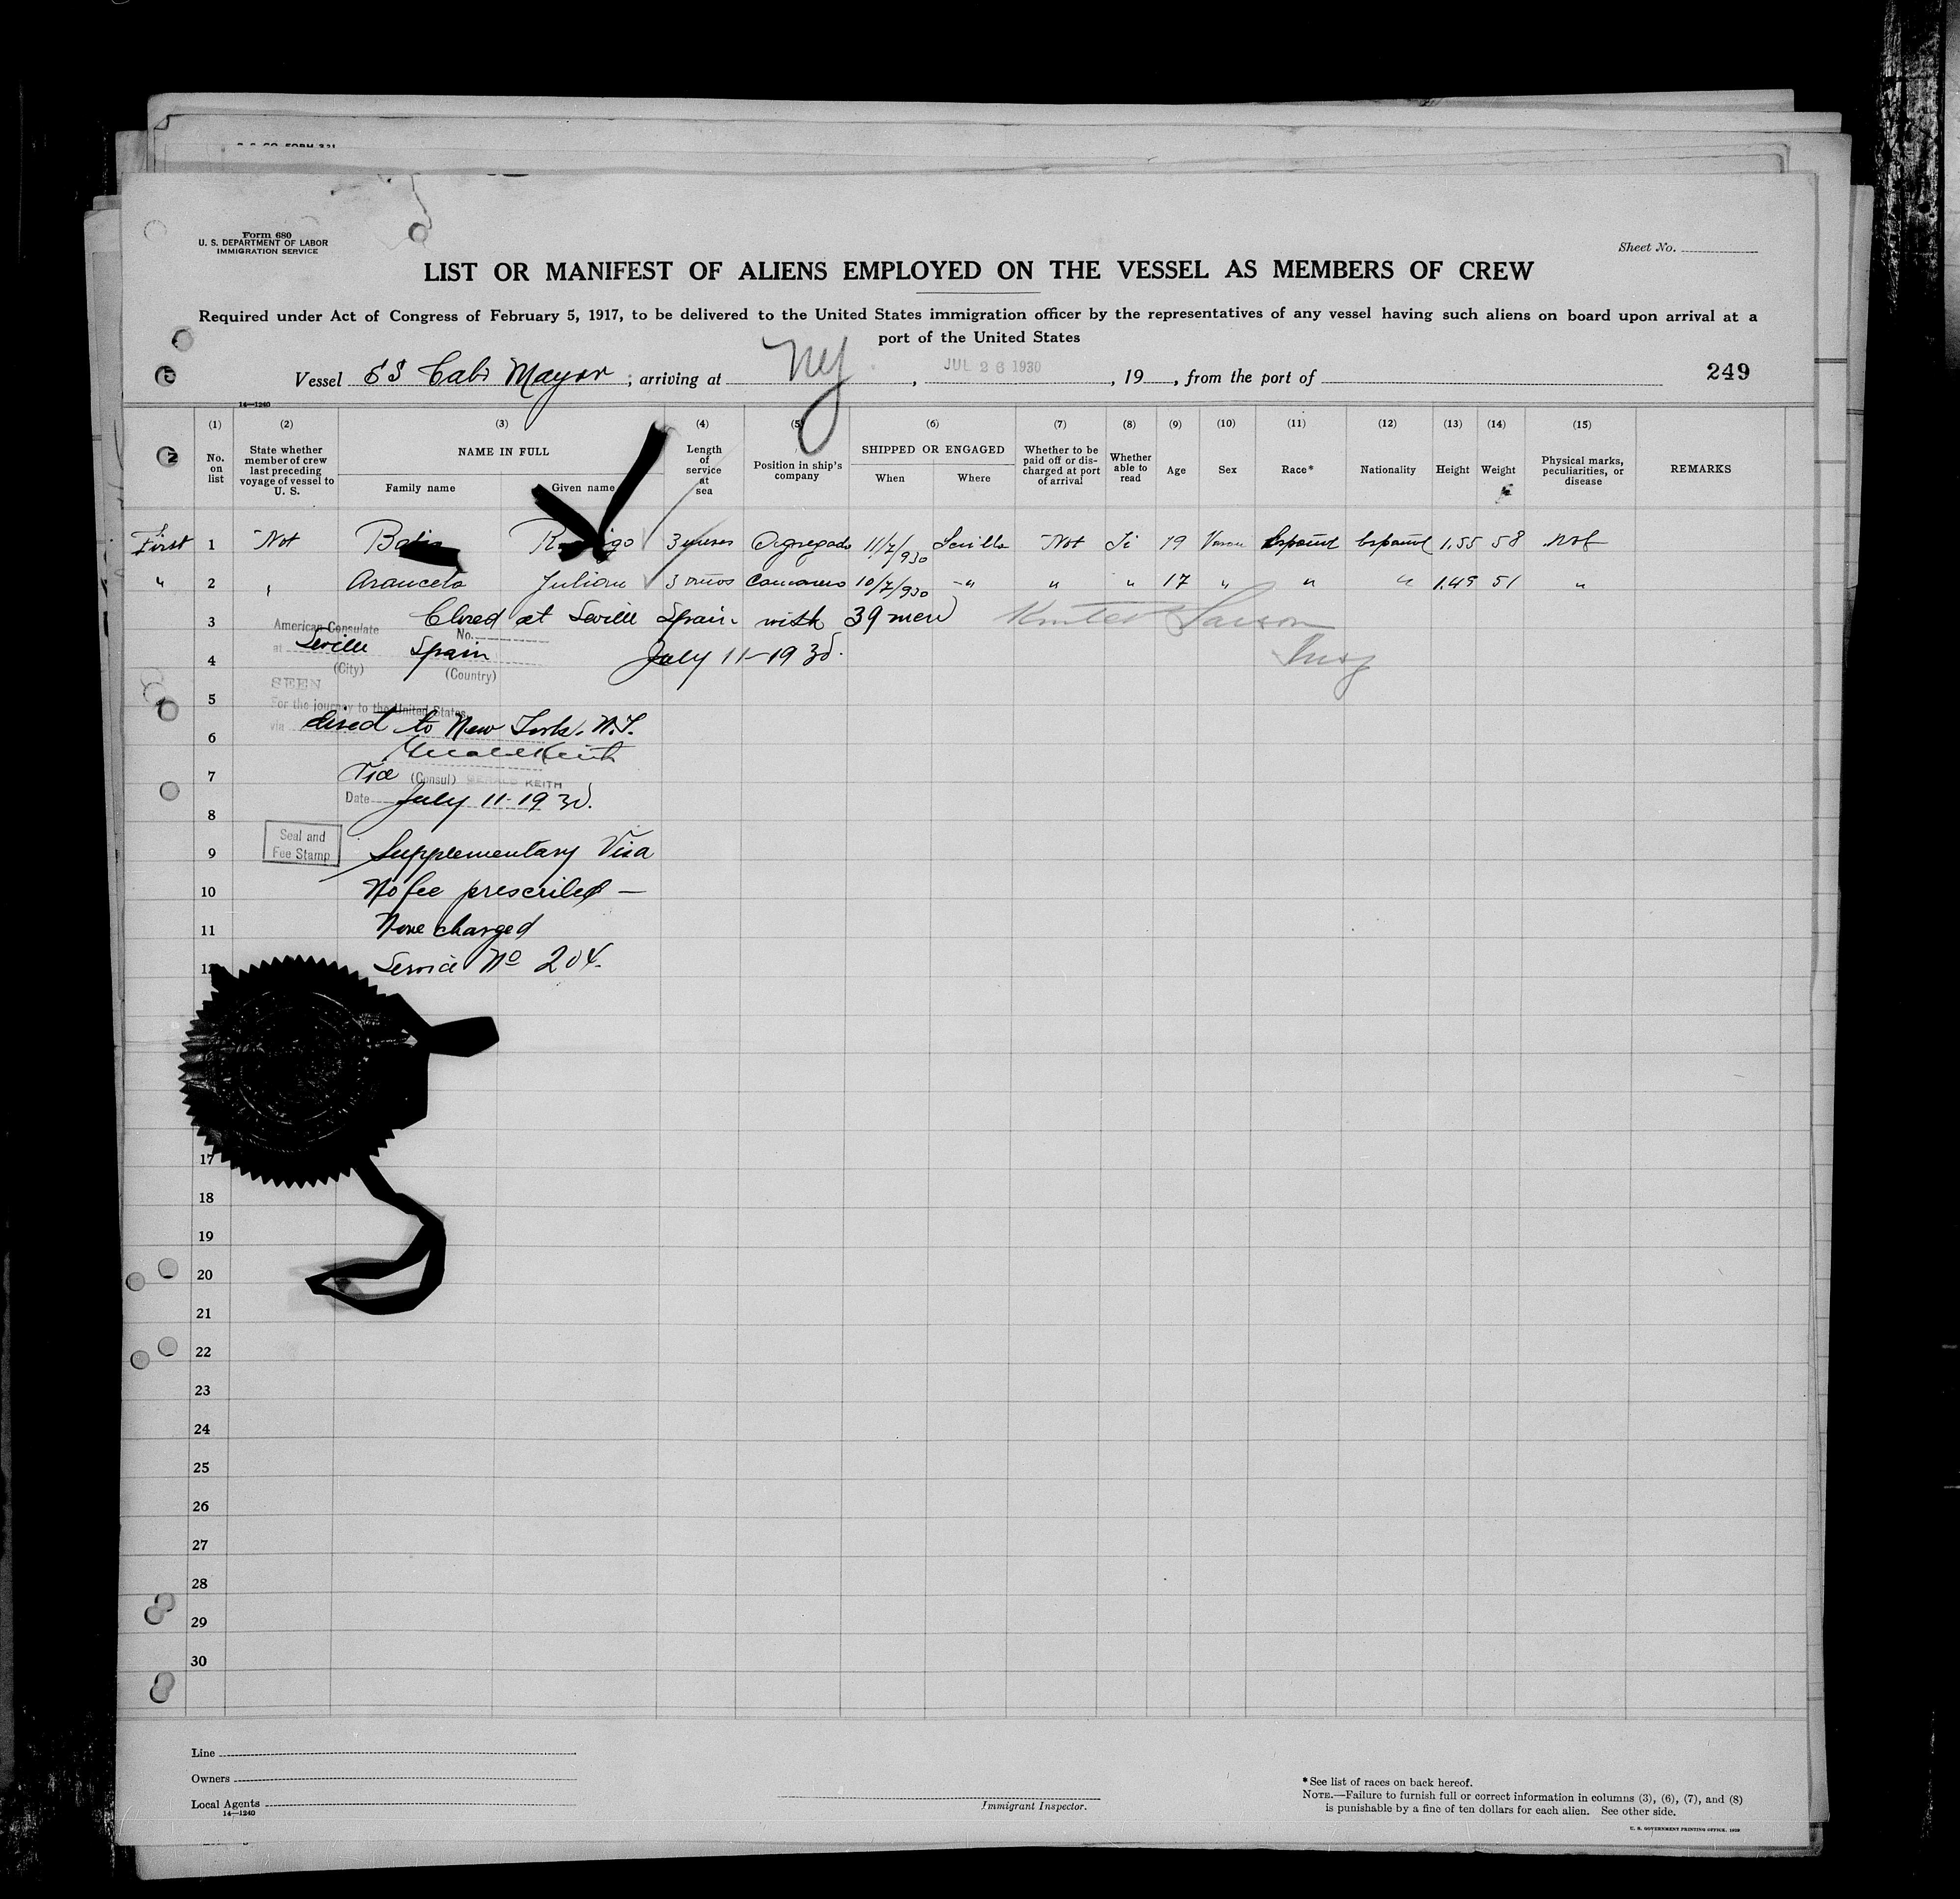 Form 680
U. S. DEPARTMENT OF LABOR
IMMIGRATION SERVICE
Sheet No.
LIST OR MANIFEST OF ALIENS EMPLOYED ON THE VESSEL AS MEMBERS OF CREW
Required under Act of Congress of February 5, 1917, to be delivered to the United States immigration officer by the representatives of any vessel having such aliens on board upon arrival at a
port of the United States
Vessel SS Cabo Mayor ; arriving at NY , JUL 26 1930 , 19 , from the port of 249
14—1240
(1) (2) (3) (4) (5) (6) (7) (8) (9) (10) (11) (12) (13) (14) (15)
No. on list
State whether member of crew last preceding voyage of vessel to U. S.
NAME IN FULL
Family name
Given name
Length of service at sea
Position in ship's company
SHIPPED OR ENGAGED
When
Where
Whether to be paid off or discharged at port of arrival
Whether able to read
Age
Sex
Race*
Nationality
Height
Weight
Physical marks, peculiarities, or disease
REMARKS
First 1 Not Rodrigo 3 meses Agregado 11/7/930 Sevilla Not Si 19 Varon Español Español 1.55 58 Not
" 2 " Julian 3 años Camarero 10/7/930 " " " 17 " " " 1.49 51 "
3 Closed at Seville Spain with 39 men
American Consulate
No.
at Seville Spain
4 July 11-1930.
(City) (Country)
SEEN
5 For the journey to the United States
via direct to New York, N.Y.
6
7 Vice (Consul) GERALD KEITH
Date July 11-1930.
8
Seal and
Fee Stamp
9 Supplementary Visa
10 No fee prescribed —
11 None charged
12 Service No 204.
17
18
19
20
21
22
23
24
25
26
27
28
29
30
Line
Owners
Local Agents
14—1240
Immigrant Inspector.
*See list of races on back hereof.
NOTE.—Failure to furnish full or correct information in columns (3), (6), (7), and (8)
is punishable by a fine of ten dollars for each alien. See other side.
U. S. GOVERNMENT PRINTING OFFICE. 1929